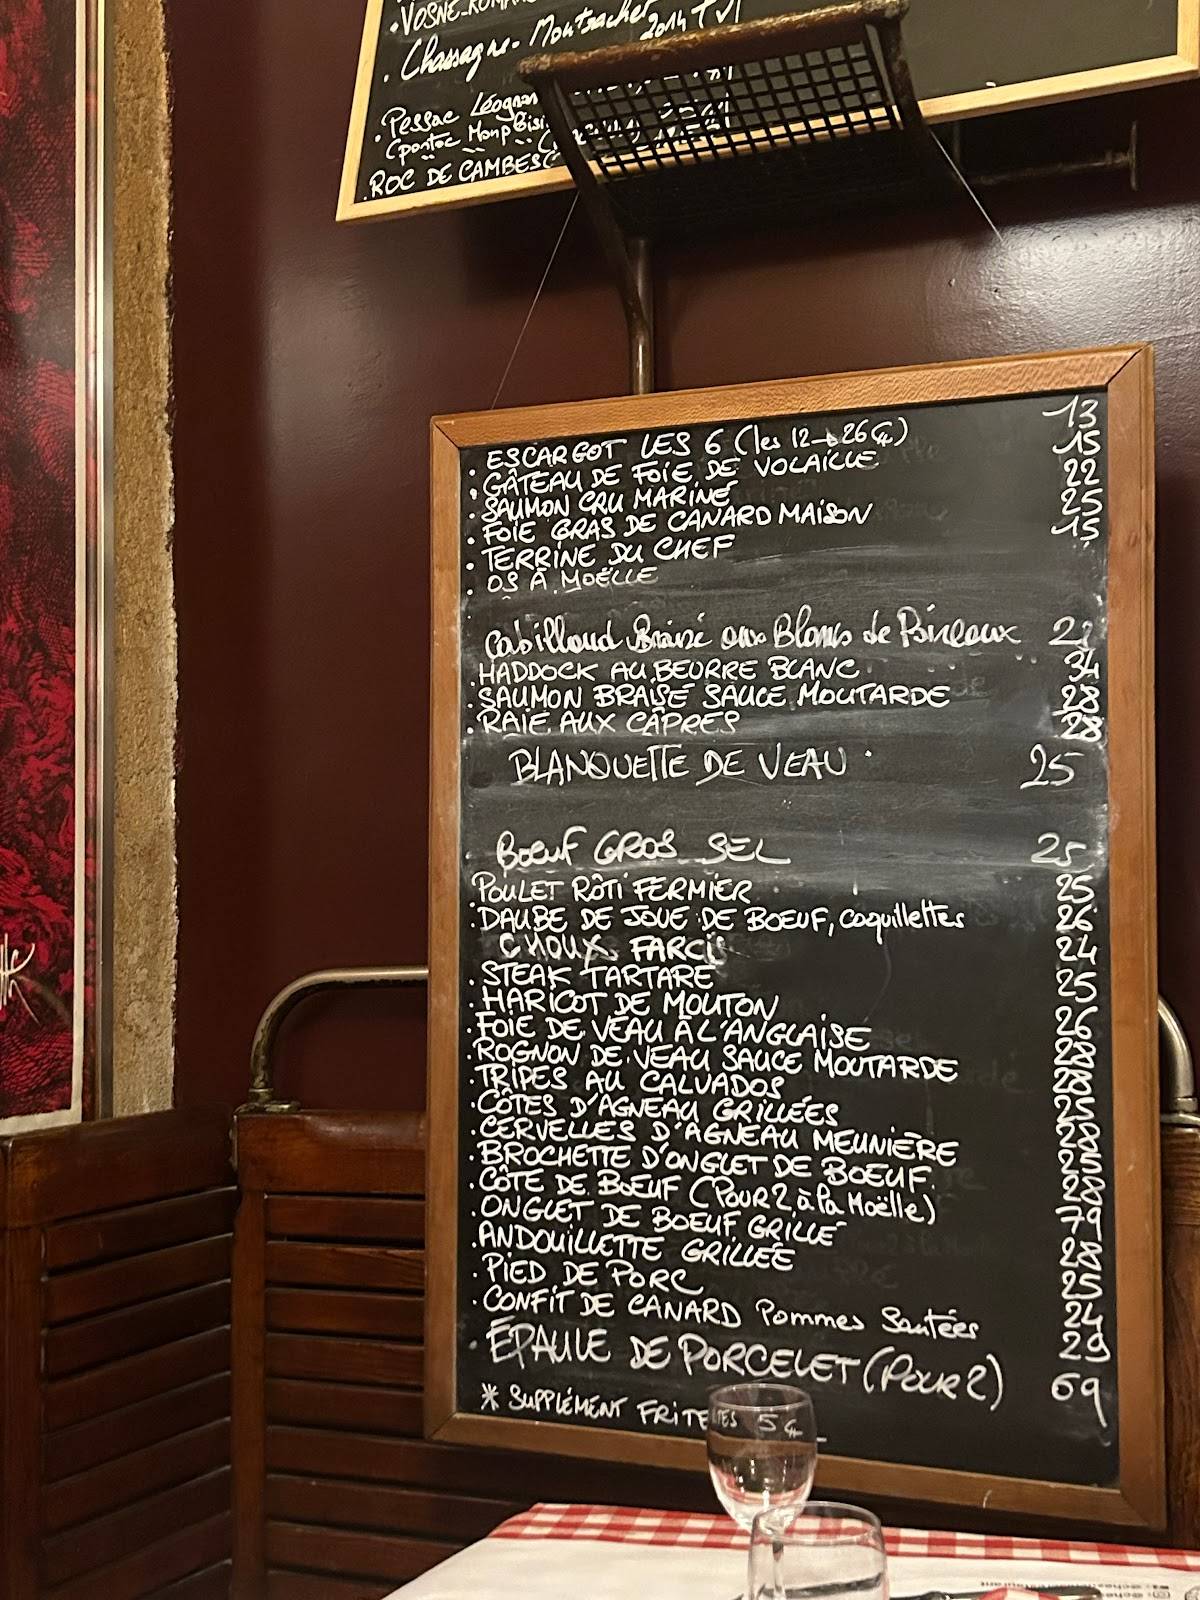 VOSNE-ROMA
Chassagne-Montrachet 2014
Pessac Léognan
ROC DE CAMBES
ESCARGOT LES 6 (les 12 → 26€) 13
GÂTEAU DE FOIE DE VOLAILLE 15
SAUMON CRU MARINÉ 22
FOIE GRAS DE CANARD MAISON 25
TERRINE DU CHEF 15
OS À MOËLLE
Cabillaud Braisé aux Blancs de Poireaux
HADDOCK AU BEURRE BLANC 34
SAUMON BRAISÉ SAUCE MOUTARDE 28
RAIE AUX CÂPRES 28
BLANQUETTE DE VEAU 25
BŒUF GROS SEL 25
POULET RÔTI FERMIER 25
DAUBE DE JOUE DE BOEUF, coquillettes 26
CHOUX FARCIS 24
STEAK TARTARE 25
HARICOT DE MOUTON 26
FOIE DE VEAU À L'ANGLAISE 28
ROGNON DE VEAU SAUCE MOUTARDE 28
TRIPES AU CALVADOS 25
CÔTES D'AGNEAU GRILLÉES 28
CERVELLES D'AGNEAU MEUNIÈRE 25
BROCHETTE D'ONGLET DE BOEUF 28
CÔTE DE BOEUF (POUR 2, à la Moëlle) 79
ONGLET DE BOEUF GRILLÉ 28
ANDOUILLETTE GRILLÉE 25
PIED DE PORC 24
CONFIT DE CANARD Pommes Sautées 29
ÉPAULE DE PORCELET (POUR 2) 69
* SUPPLÉMENT FRITES 5€